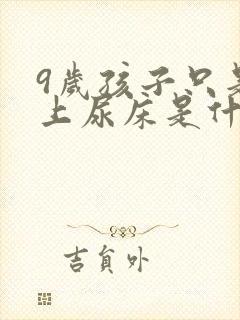 9歲孩子只是
上尿床是什
吉貟外